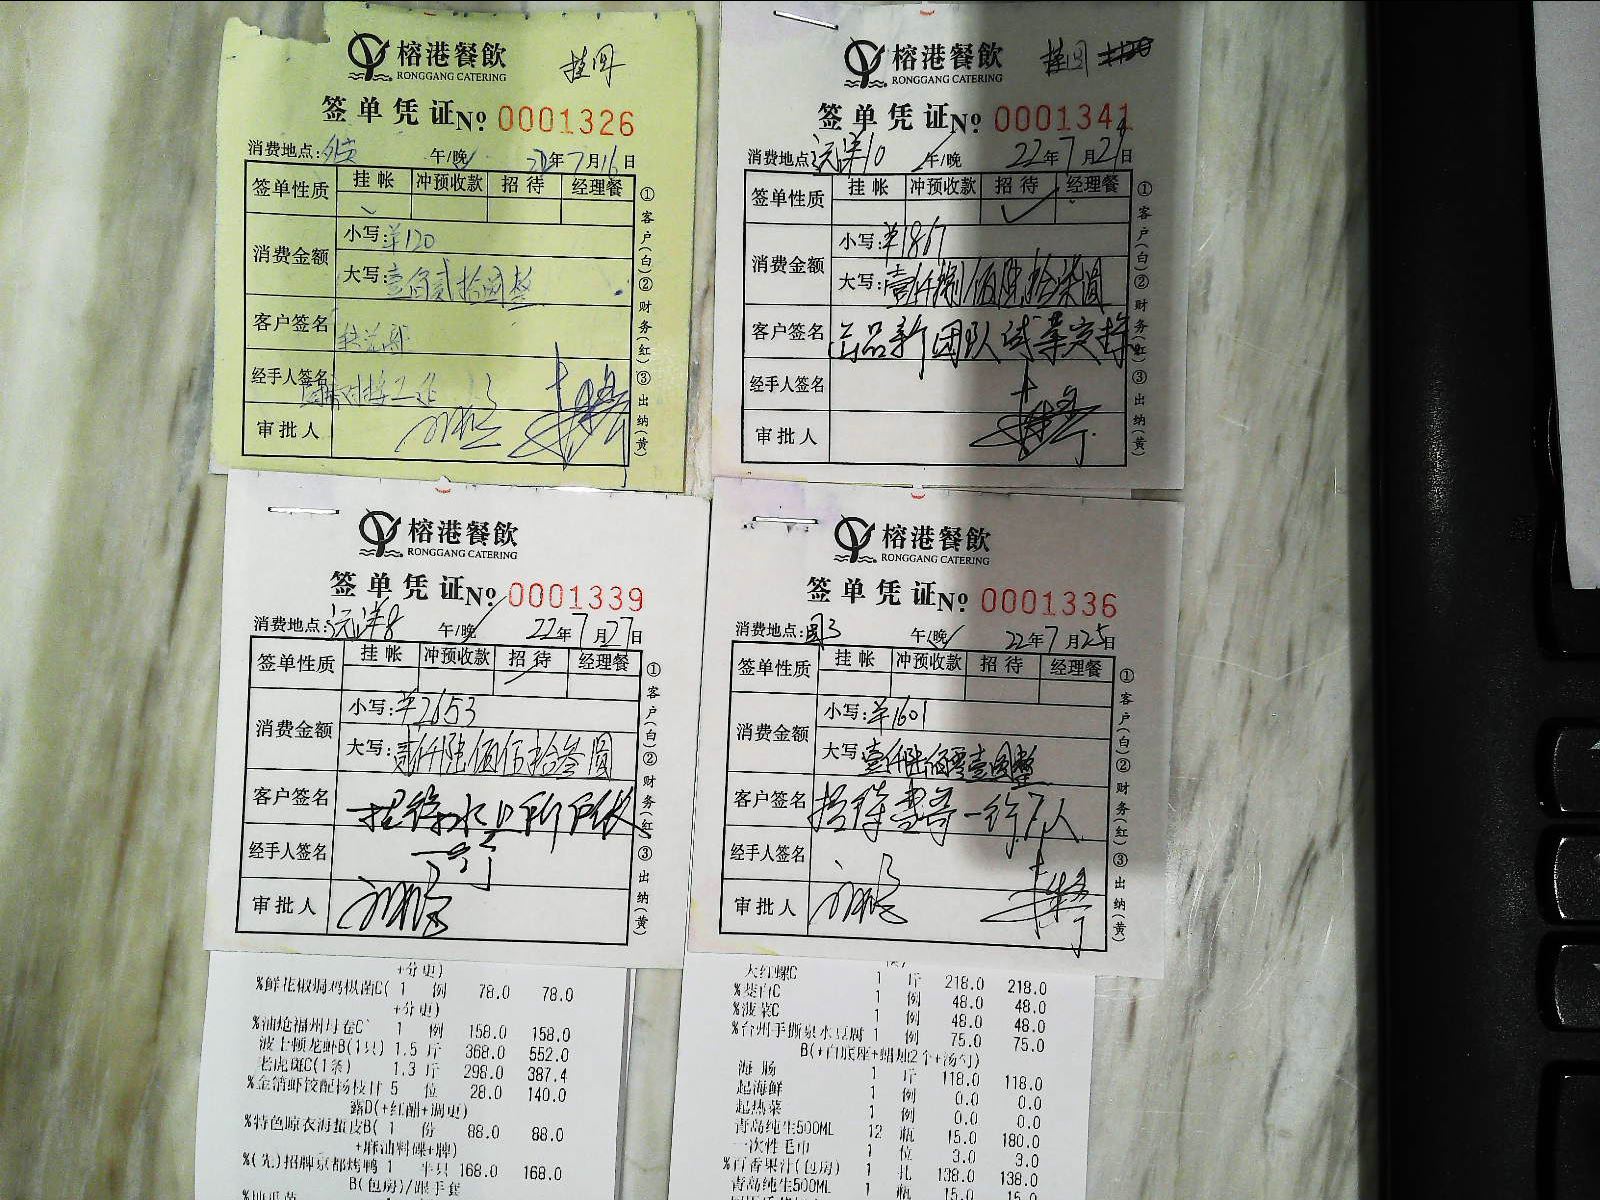 榕港餐飲
RONGGANG CATERING
签单凭证No 0001326
消费地点: 午/晚 22年7月16日
签单性质 挂帐 冲预收款 招待 经理餐
消费金额 小写:¥120
大写:壹佰贰拾圆整
客户签名
经手人签名
审批人
①客户(白)②财务(红)③出纳(黄)
榕港餐飲
RONGGANG CATERING
签单凭证No 0001341
消费地点:远洋10 午/晚 22年7月29日
签单性质 挂帐 冲预收款 招待 经理餐
消费金额 小写:¥1867
大写:壹仟捌佰陆拾柒圆
客户签名 出品新团队试菜
经手人签名
审批人
①客户(白)②财务(红)③出纳(黄)
榕港餐飲
RONGGANG CATERING
签单凭证No 0001339
消费地点:远洋8 午/晚 22年7月27日
签单性质 挂帐 冲预收款 招待 经理餐
消费金额 小写:¥2653
大写:贰仟陆佰伍拾叁圆
客户签名 招待水上所所长
经手人签名 一行
审批人
①客户(白)②财务(红)③出纳(黄)
榕港餐飲
RONGGANG CATERING
签单凭证No 0001336
消费地点: 3 午/晚 22年7月25日
签单性质 挂帐 冲预收款 招待 经理餐
消费金额 小写:¥1601
大写:壹仟陆佰零壹圆整
客户签名 招待 哥一行7人
经手人签名
审批人
①客户(白)②财务(红)③出纳(黄)
+分更)
%鲜花椒焗鸡枞菌C( 1 例 78.0 78.0
+分更)
%油炝福州海卷C 1 例 158.0 158.0
波士顿龙虾B(1只) 1.5 斤 368.0 552.0
老虎斑C(1条) 1.3 斤 298.0 387.4
%金箔虾饺配杨枝甘 5 位 28.0 140.0
露D(+红醋+调更)
%特色晾衣海蜇皮B( 1 份 88.0 88.0
+麻油料碟+牌)
%(先)招牌京都烤鸭 1 半只 168.0 168.0
B(包房)/跟手套
大红螺C 1 斤 218.0 218.0
%茭白C 1 例 48.0 48.0
%菠菜C 1 例 48.0 48.0
%台州手撕泉水豆腐 1 例 75.0 75.0
B(+白底座+蜡烛2个+汤勺)
海肠 1 斤 118.0 118.0
起海鲜 1 例 0.0 0.0
起热菜 1 例 0.0 0.0
青岛纯生500ML 12 瓶 15.0 180.0
一次性毛巾 1 位 3.0 3.0
%百香果汁(包房) 1 扎 138.0 138.0
青岛纯生500ML 1 瓶 15.0 15.0